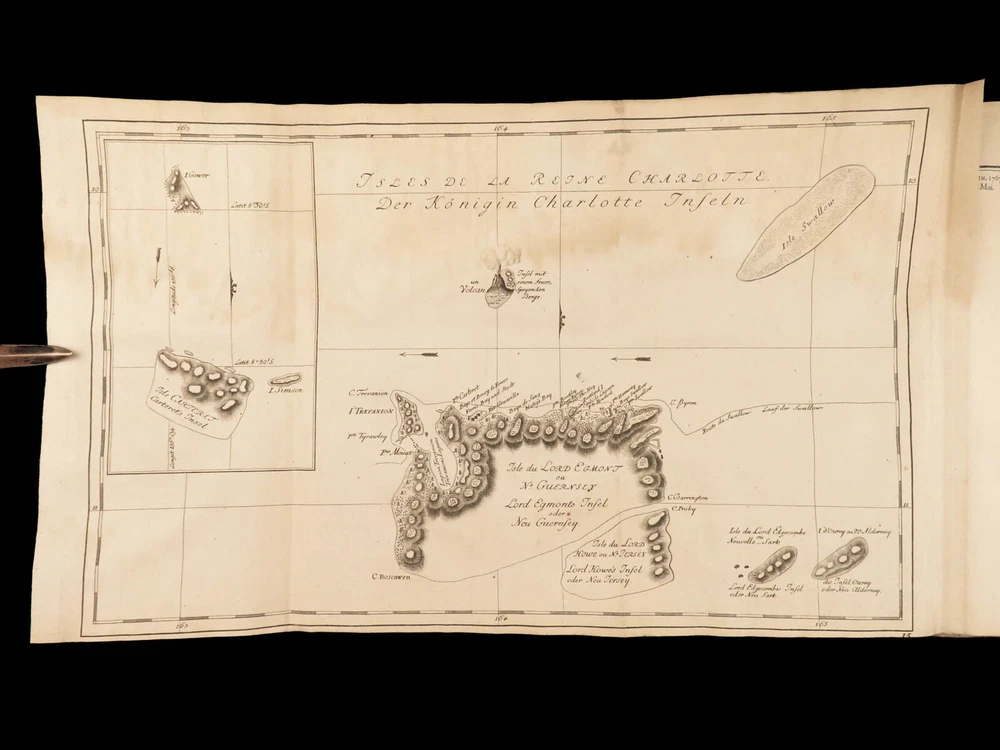 163
164
165
10
10
ISLES DE LA REINE CHARLOTTE
Der Königin Charlotte Inseln
I. Gower
Latit. 8°30' S.
un
Volcan
Insel mit
einem feuer
speyenden
Berge.
Isle Swallow
I. Simson
Isle CARTERET
Carterets Insel
C. Trevanion
I. TREVANION
Pte Tyrawley
C. Byron
Route du Swallow Lauf der Swallow
Isle du LORD EGMONT
ou
Nle GUERNSEY
Lord Egmonts Insel
oder
Neu Guernsey
C. Barrington
C. Proby
11
11
Isle du LORD
HOWE ou Nle JERSEY
Lord Howe's Insel
oder Neu Jersey.
C. Boscawen
Isle du Lord Edgecombe
ou
Nouvelle Sark
Lord Edgecombe Insel
oder Neu Sark
I. d'Ourry ou Nle Alderney
die Insel Ourry
oder Neu Alderney.
163
164
165
15
Mai.